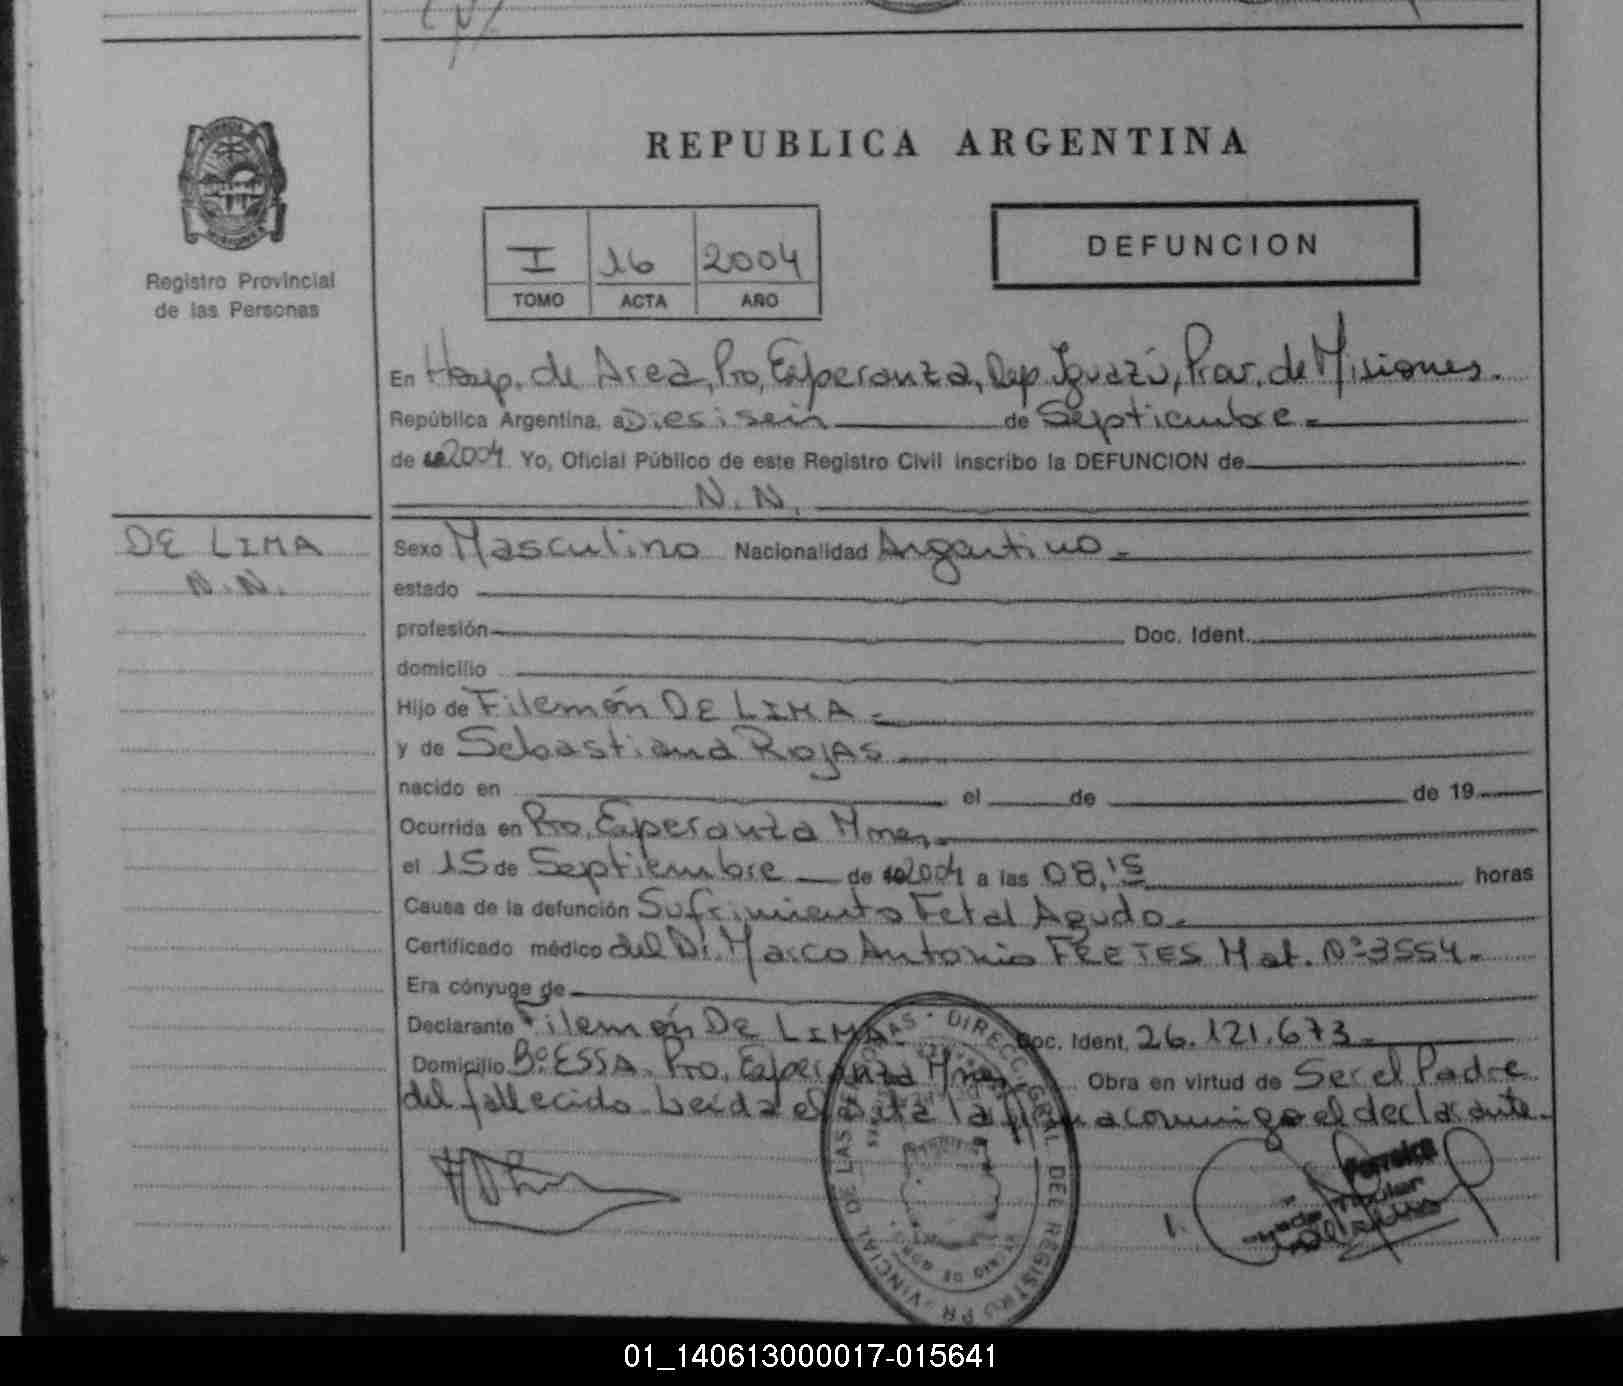 REPUBLICA ARGENTINA
Registro Provincial
de las Personas
I 16 2004
TOMO ACTA AÑO
DEFUNCION
En Hosp. de Area, Pto, Esperanza, Dep. Iguazú, Prov. de Misiones.
República Argentina, a Diesiseis de Septiembre.
de 2004. Yo, Oficial Público de este Registro Civil inscribo la DEFUNCION de
N.N.
DE LIMA
N.N.
Sexo Masculino Nacionalidad Argentino.
estado
profesión Doc. Ident.
domicilio
Hijo de Filemón DE LIMA.
y de Sebastiana ROJAS
nacido en el de de 19
Ocurrida en Pto. Esperanza Mnes.
el 15 de Septiembre de 2004 a las 08,15 horas
Causa de la defunción Sufrimiento Fetal Agudo.
Certificado médico del Dr. Marco Antonio FRETES Mat. Nº 3554.
Era cónyuge de
Declarante Filemón DE LIMA. Doc. Ident. 26.121.673.
Domicilio Bº. ESSA. Pto. Esperanza Mnes Obra en virtud de Ser el Padre
del fallecido. Leída el Acta la firma conmigo el declarante.
DIRECC. GRAL. DEL REGISTRO PROVINCIAL DE LAS PERSONAS
Ferreira
01_140613000017-015641